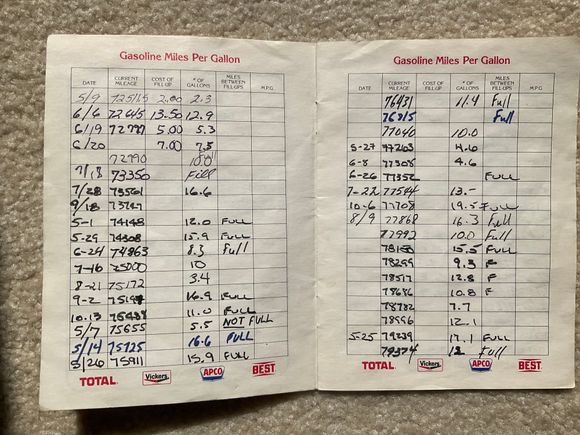 Gasoline Miles Per Gallon
DATE CURRENT MILEAGE COST OF FILL-UP # OF GALLONS MILES BETWEEN FILL-UPS M.P.G.
5/9 72515 2.00 2.3
6/6 72645 13.50 12.9
6/19 72777 5.00 5.3
6/20 7.00 7.5
72990 10.0 Full
7/18 73350 Fill
7/28 73561 16.6
9/18
5-1 74148 12.0 FULL
5-29 74308 15.9 FULL
6-24 74863 8.3 Full
7-16 75000 10
8-21 75172 3.4
9-2 16.9 FULL
10.13 75438 11.0 FULL
5/7 75655 5.5 NOT FULL
5/14 75725 16.6 FULL
5/26 75911 15.9 FULL
TOTAL Vickers APCO BEST
Gasoline Miles Per Gallon
DATE CURRENT MILEAGE COST OF FILL-UP # OF GALLONS MILES BETWEEN FILL-UPS M.P.G.
76431 11.4 Full
76815 Full
77040 10.0
5-27 77203 4.6
6-8 77308 4.6
6-26 77352 FULL
7-22 77544 13.-
10-6 77708 19.5 FULL
8/9 77868 16.3 Full
77992 10.0 Full
15.5 FULL
78299 9.3 F
78517 12.8 F
78686 10.8 F
78782 7.7
78996 12.1
5-25 79239 17.1 FULL
79374 12 Full
TOTAL Vickers APCO BEST